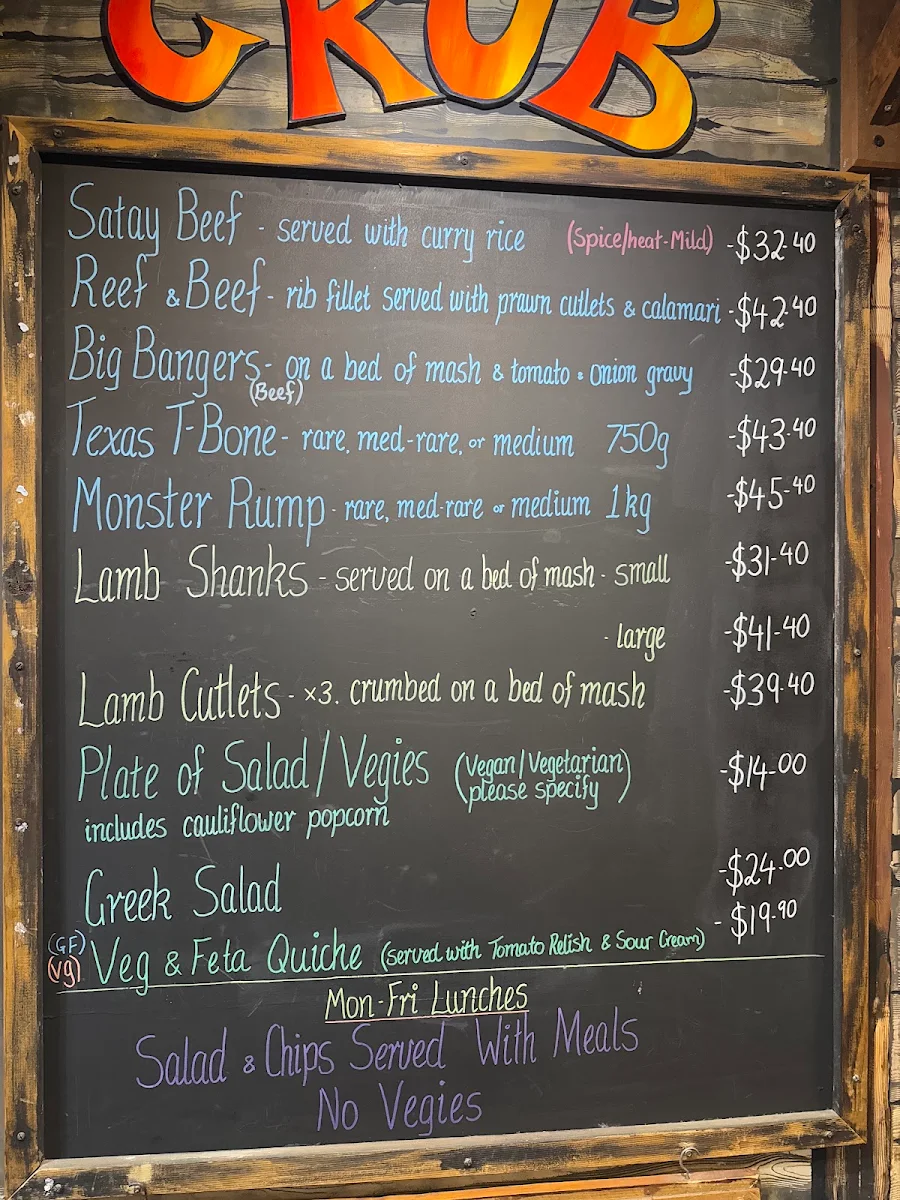 GRUB
Satay Beef - served with curry rice (Spice/heat-Mild) -$32.40
Reef & Beef - rib fillet served with prawn cutlets & calamari -$42.40
Big Bangers - on a bed of mash & tomato & onion gravy -$29.40
(Beef)
Texas T-Bone - rare, med-rare, or medium 750g -$43.40
Monster Rump - rare, med-rare or medium 1kg -$45.40
Lamb Shanks - served on a bed of mash - small -$31.40
- large -$41.40
Lamb Cutlets - x3. crumbed on a bed of mash -$39.40
Plate of Salad/Vegies (Vegan/Vegetarian) -$14.00
please specify
includes cauliflower popcorn
Greek Salad -$24.00
(GF) (vg) Veg & Feta Quiche (served with Tomato Relish & Sour Cream) - $19.90
Mon-Fri Lunches
Salad & Chips Served With Meals
No Vegies